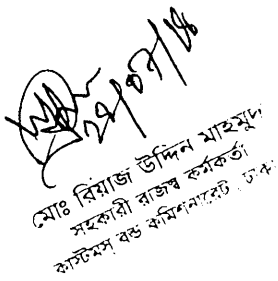 মোঃ রিয়াজ উদ্দিন মাহমুদ
সহকারী রাজস্ব কর্মকর্তা
কাস্টমস বন্ড কমিশনারেট, ঢাকা